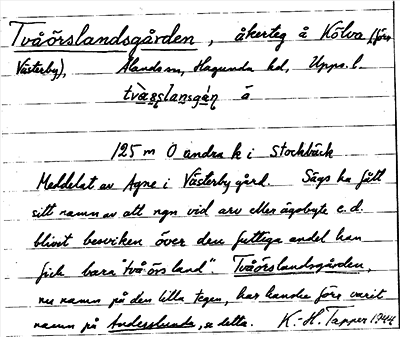 Tvåörslandsgården, åkerteg å Kölva (förr
Västerby), Ålands sn, Hagunda hd, Upps. l.
å
125 m O andra k i Stockbäck
Meddelat av Agne i Västerby gård. Sägs ha fått
sitt namn av att ngn vid arv eller ägobyte e.d.
blivit besviken över den futtiga andel han
fick bara "två örs land". Tvåörslandsgården,
nu namn på den lilla tegen, har kanske förr varit
namn på Anderslunda, se detta. K.-H. Tapper 1944